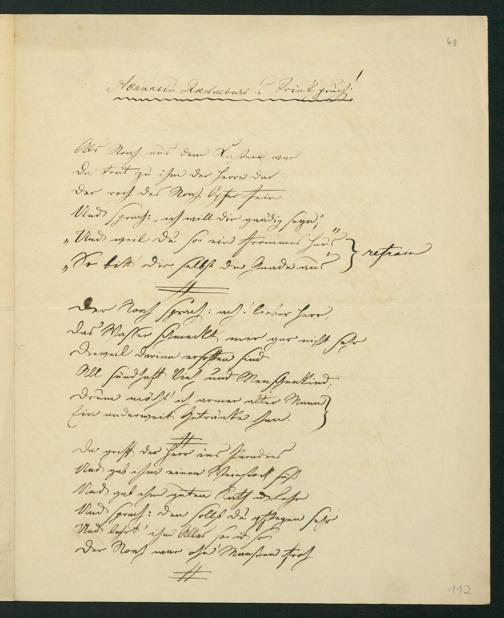 68
Trinkspruch!
Als Noah aus dem Kasten war
Da trat zu ihm der Herre dar
Der roch des Noah Opfer fein
Und sprach: „ich will dir gnädig seyn,"
„Und weil du so ein frommes Haus"
„So bitt dir selbst die Gnade aus" } refrain
Der Noah sprach: ach: lieber Herr,
Das Wasser schmeckt mir gar nicht sehr
Dieweil darinn ersoffen sind
All sündhaft Vieh und Menschenkind,
Drum möcht' ich armer alter Mann
Ein anderweit Getränke han. }
Da griff der Herr ins Paradies
Und gab ihm einen Weinstock süß
Und gab ihm guten Rath u Lehr
Und sprach: den sollst du pflegen sehr
Und lehrt' ihm Alles so u so
Der Noah war ohn' Maassen froh
112